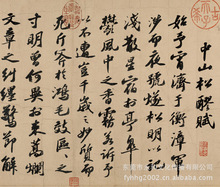 中山松醪賦
始予宵濟于衡漳軍
涉而夜號燧松明以記
淺散星宿於亭皋
鬱風中之香霧若訴予
以不遭豈千歲之妙質而
死斤斧於鴻毛效區區之
寸明曾何異於束蒿爛
文章之糾纆驚節解